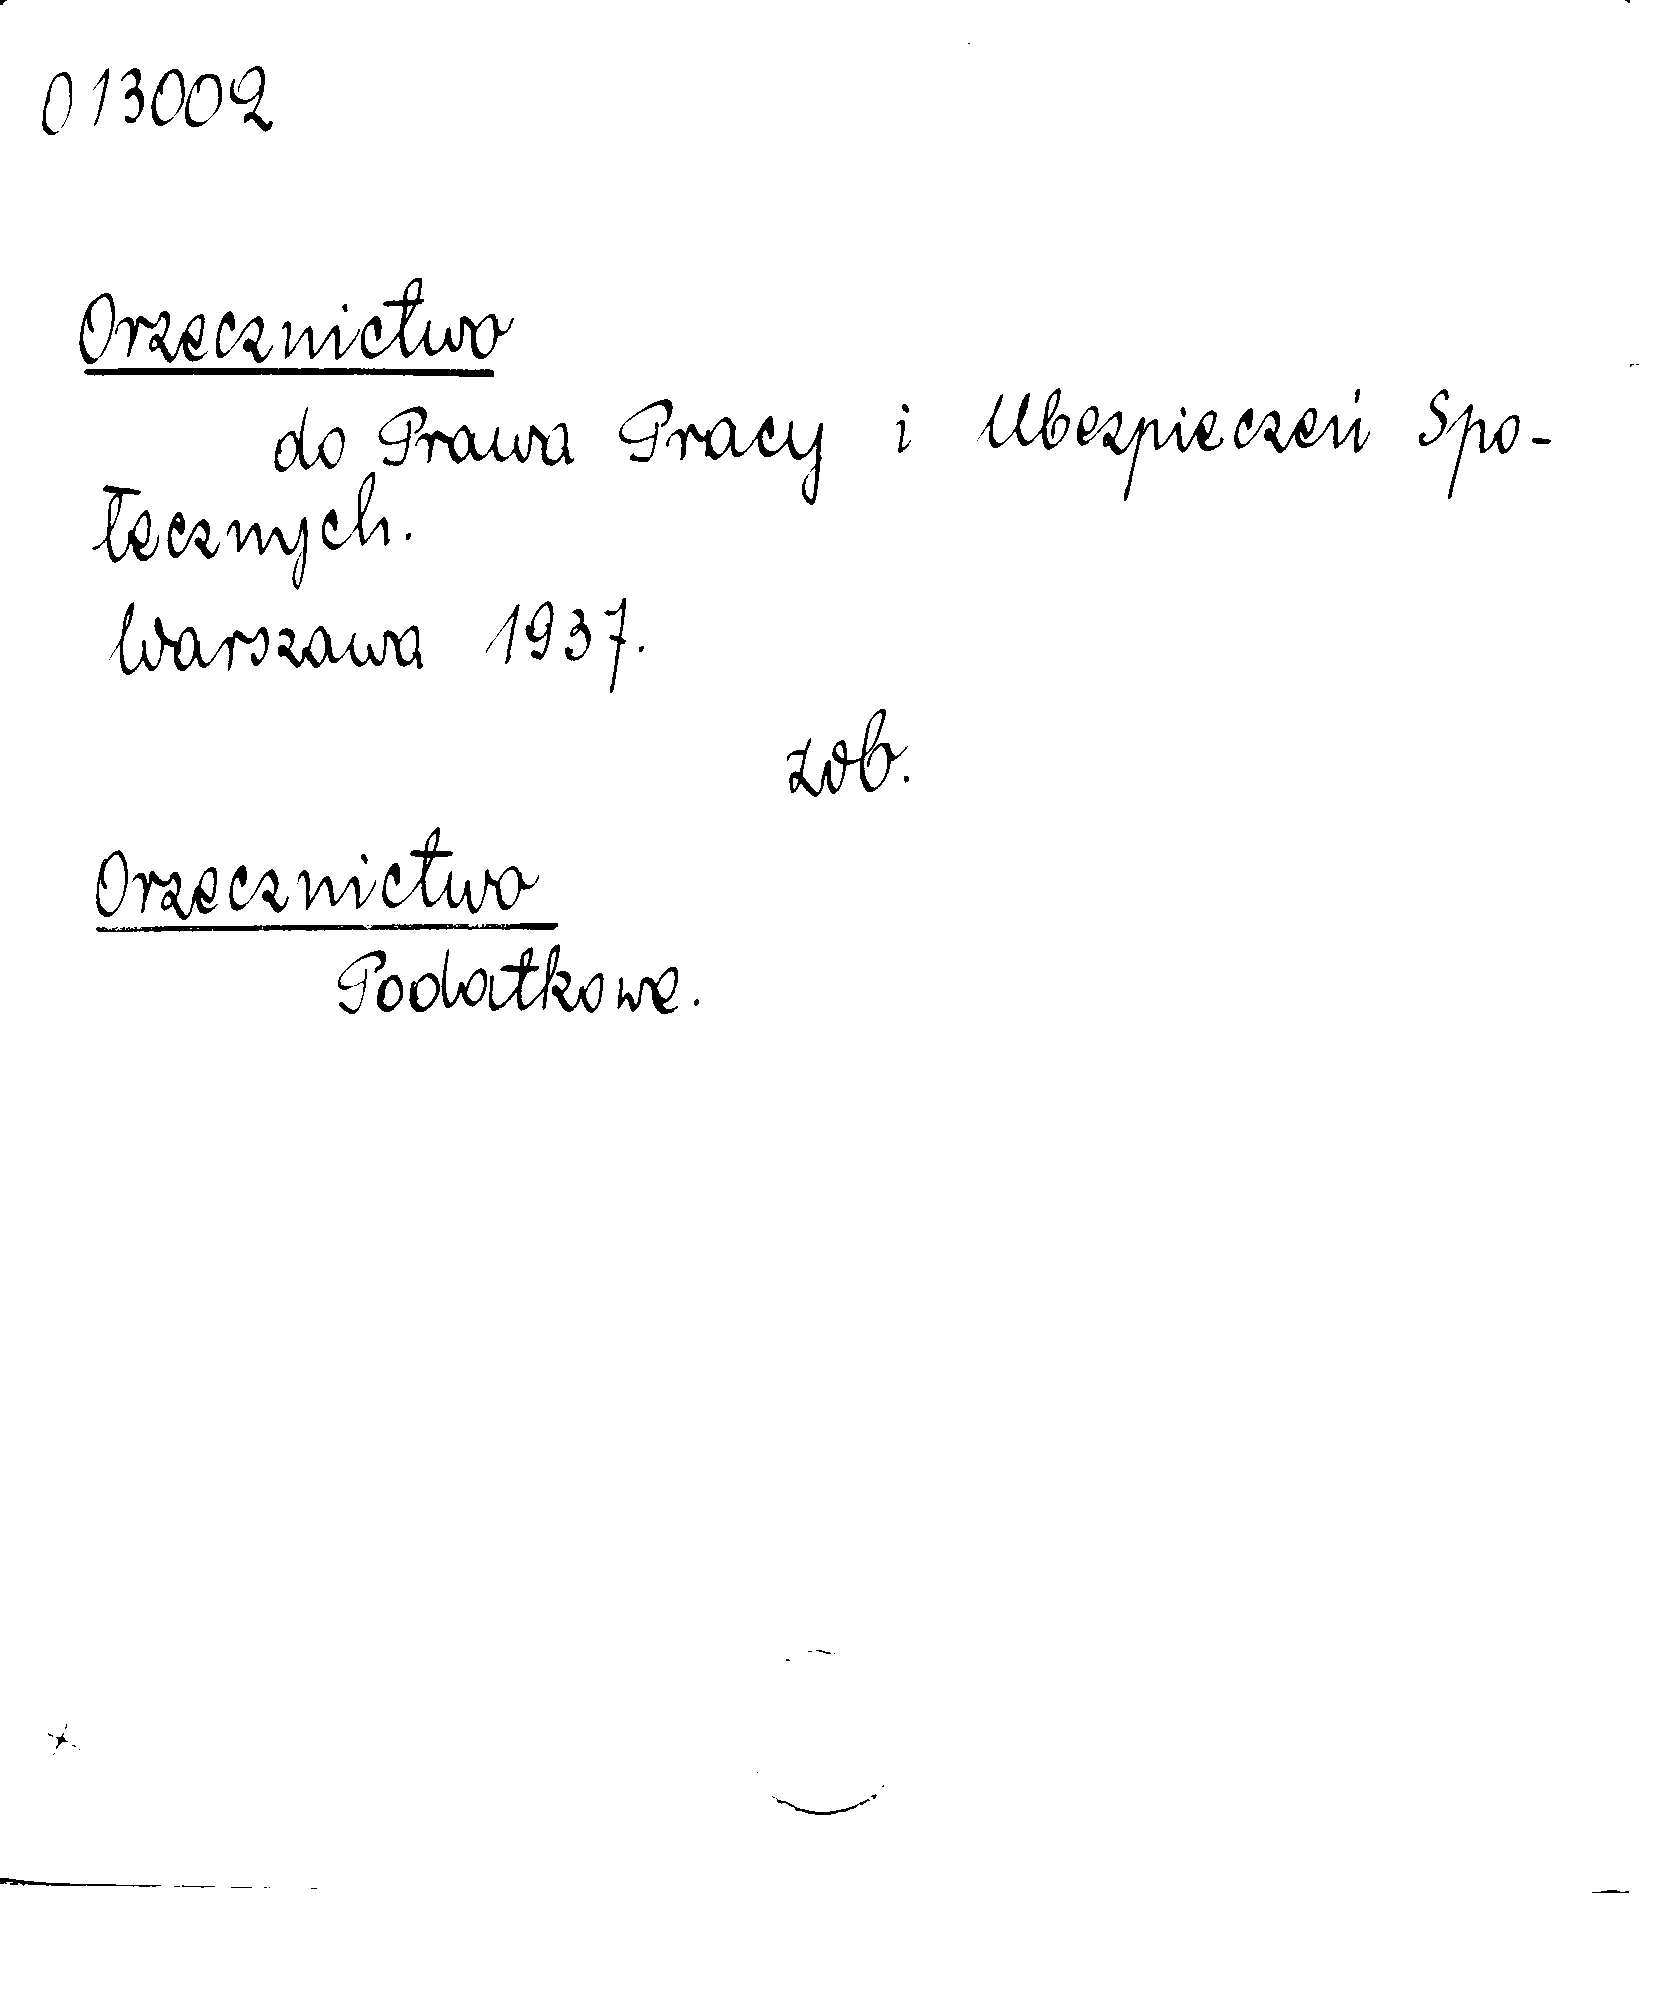 013002
Orzecznictwo
do Prawa Pracy i Ubezpieczeń Spo-
łecznych.
Warszawa 1937.
zob.
Orzecznictwo
Podatkowe.